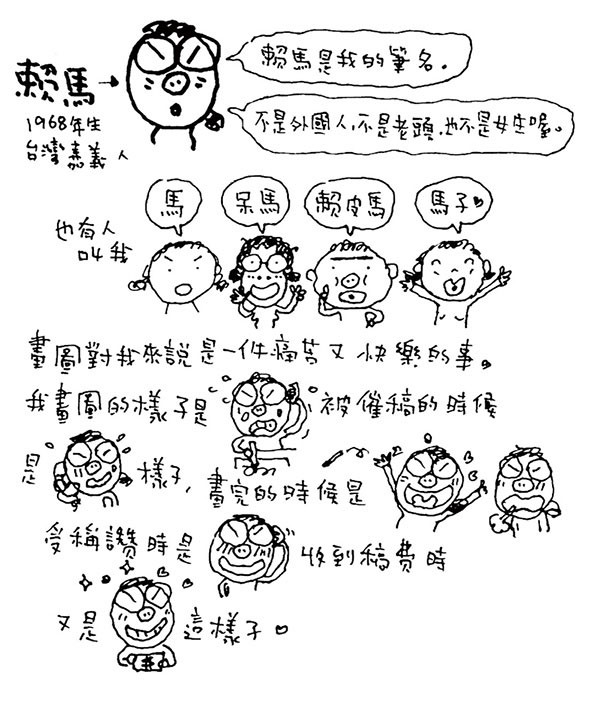 賴馬
1968年生
台灣嘉義人
賴馬是我的筆名。
不是外國人,不是老頭,也不是女生喔。
也有人
叫我
馬
呆馬
賴皮馬
馬子
畫圖對我來說是一件痛苦又快樂的事。
我畫圖的樣子是 被催稿的時候
是 樣子,畫完的時候是
受稱讚時是 收到稿費時
又是 這樣子